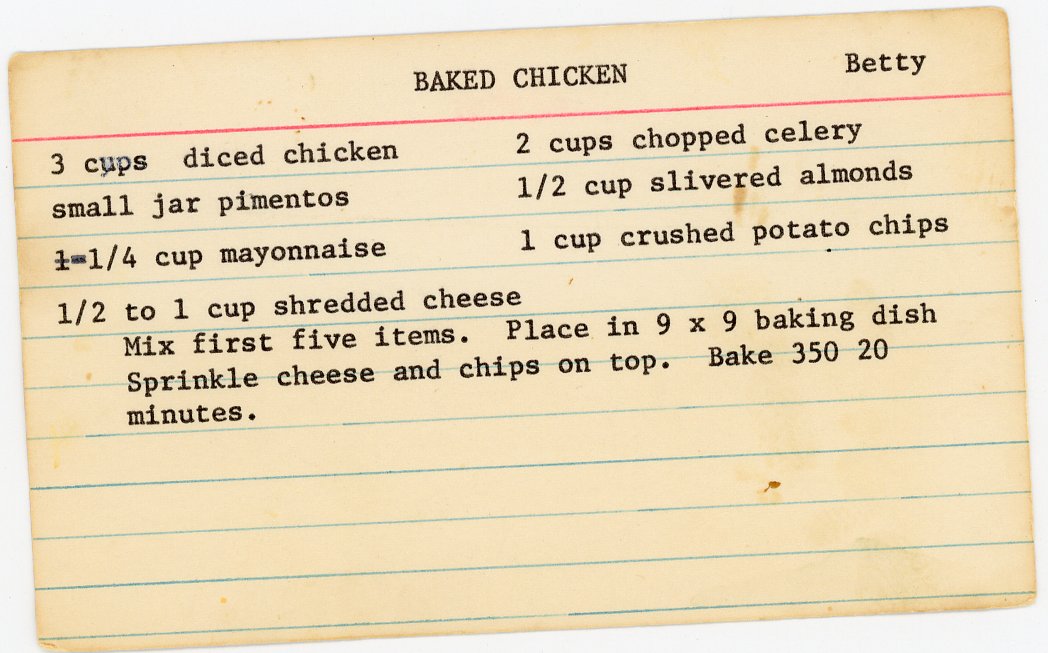 BAKED CHICKEN Betty
3 cups diced chicken 2 cups chopped celery
small jar pimentos 1/2 cup slivered almonds
1-1/4 cup mayonnaise 1 cup crushed potato chips
1/2 to 1 cup shredded cheese
Mix first five items. Place in 9 x 9 baking dish
Sprinkle cheese and chips on top. Bake 350 20
minutes.